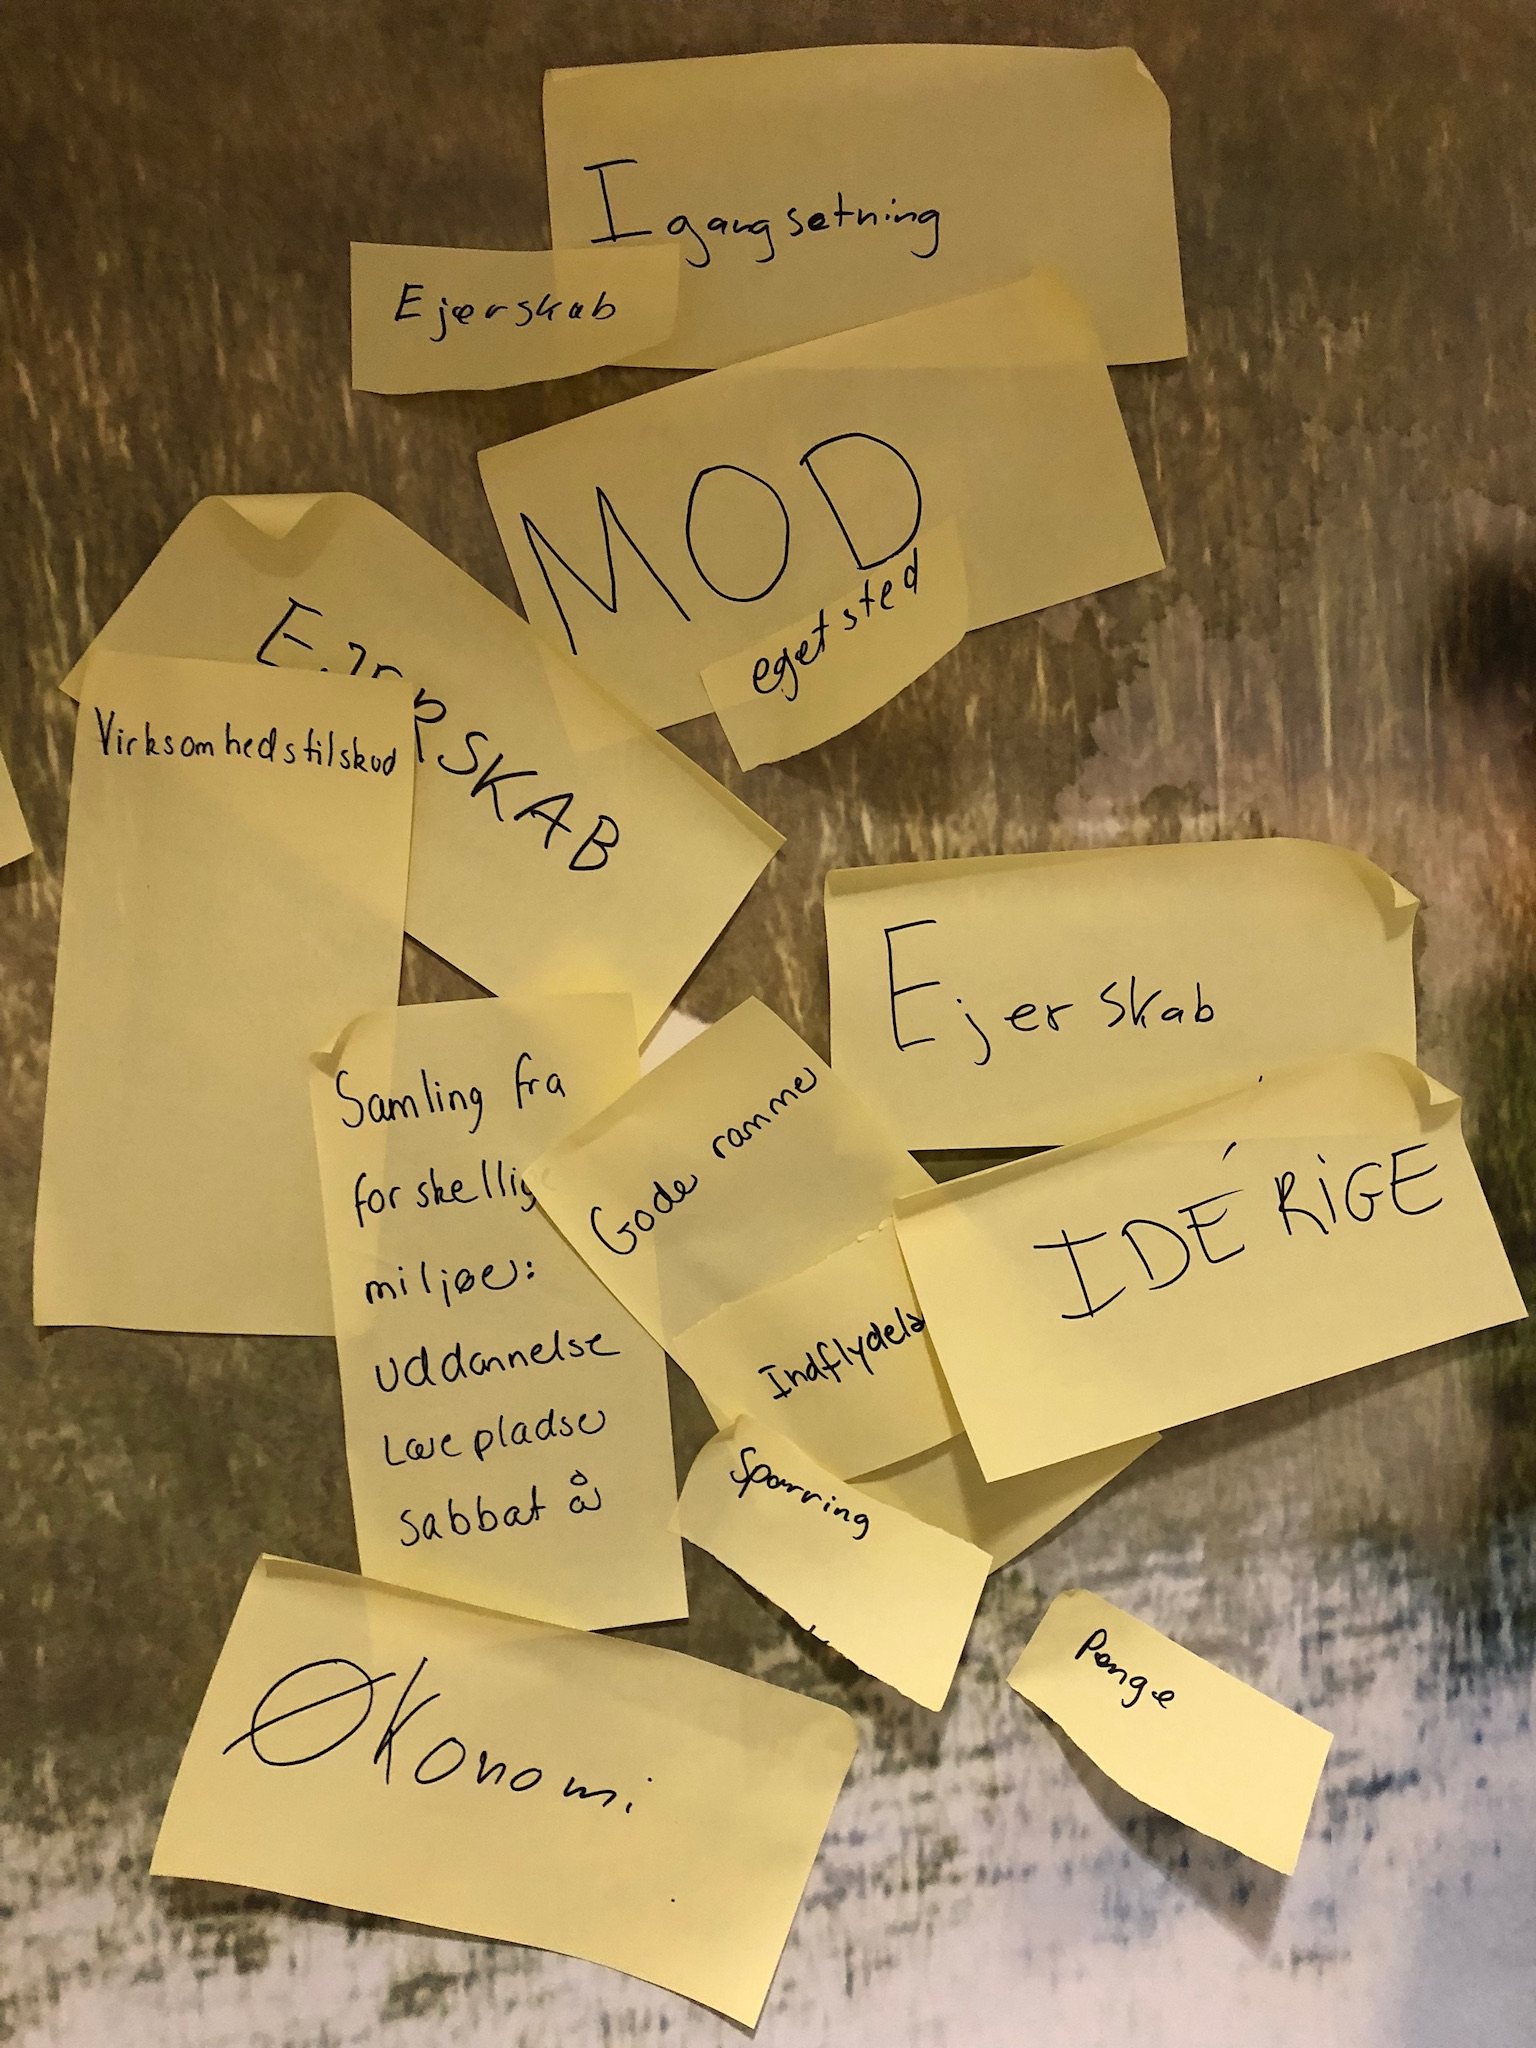 Igangsetning
Ejerskab
MOD
eget sted
EJERSKAB
Virksomhedstilskud
Ejerskab
Samling fra
forskellige
miljøer:
uddannelse
Lærepladser
Sabbat år
Gode rammer
IDÉ RIGE
Indflydels
Sparring
Penge
Økonomi